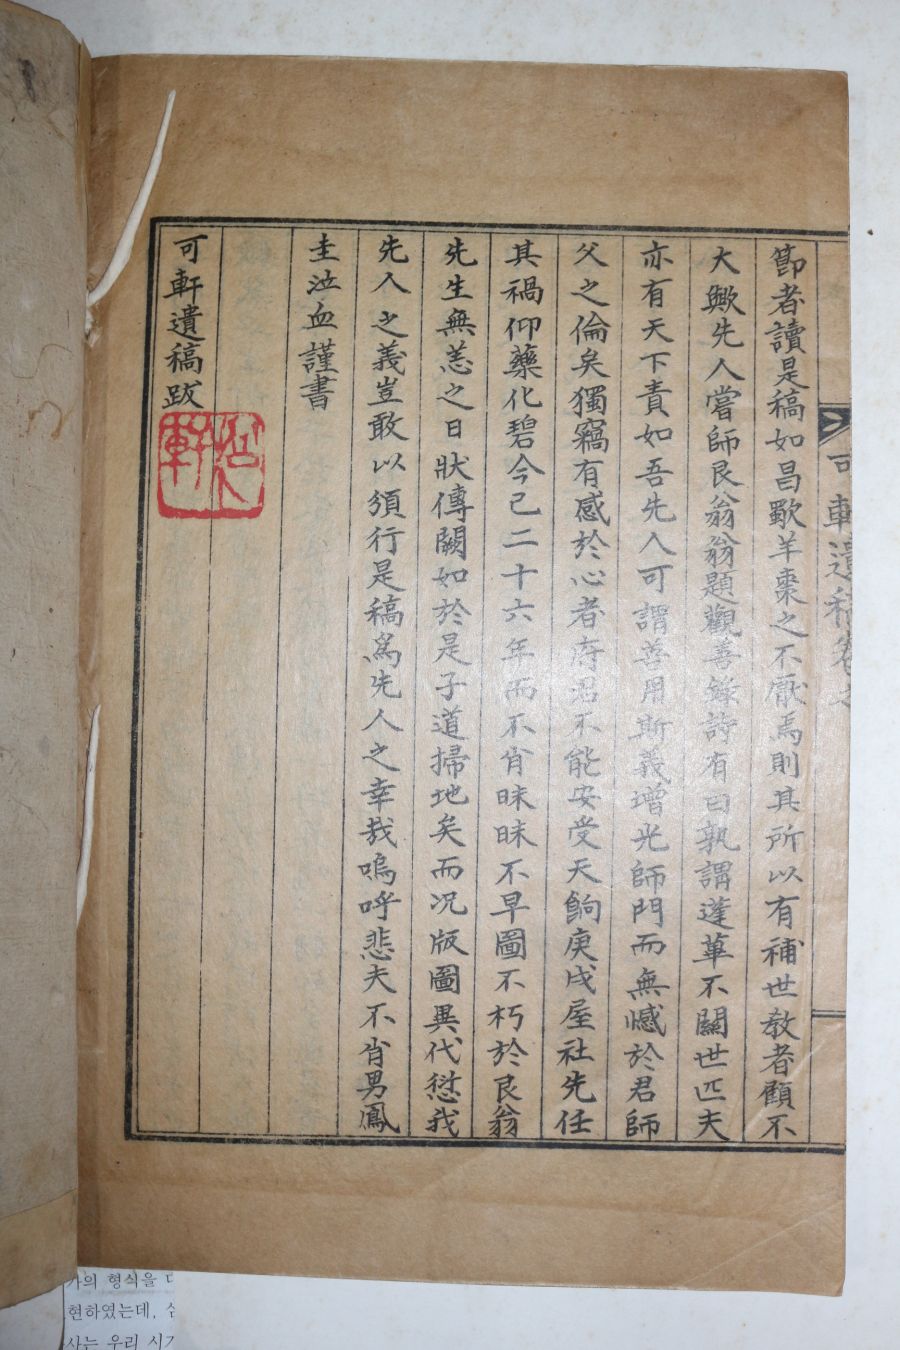 節者讀是稿如昌歜羊棗之不厭焉則其所以有補世敎者顧不
大歟先人嘗師艮翁翁題觀善錄詩有曰孰謂蓬蓽不關世匹夫
亦有天下責如吾先人可謂善用斯義增光師門而無憾於君師
父之倫矣獨竊有感於心者府君不能安受天餉庚戌屋社先任
其禍仰藥化碧今已二十六年而不肖昧昧不早圖不朽於艮翁
先生無恙之日狀傳闕如於是子道掃地矣而况版圖異代愆我
先人之義豈敢以須行是稿爲先人之幸哉嗚呼悲夫不肖男鳳
圭泣血謹書
可軒遺稿跋
可軒遺稿卷之
가의 형식을
현하였는데,
사는 우리 시